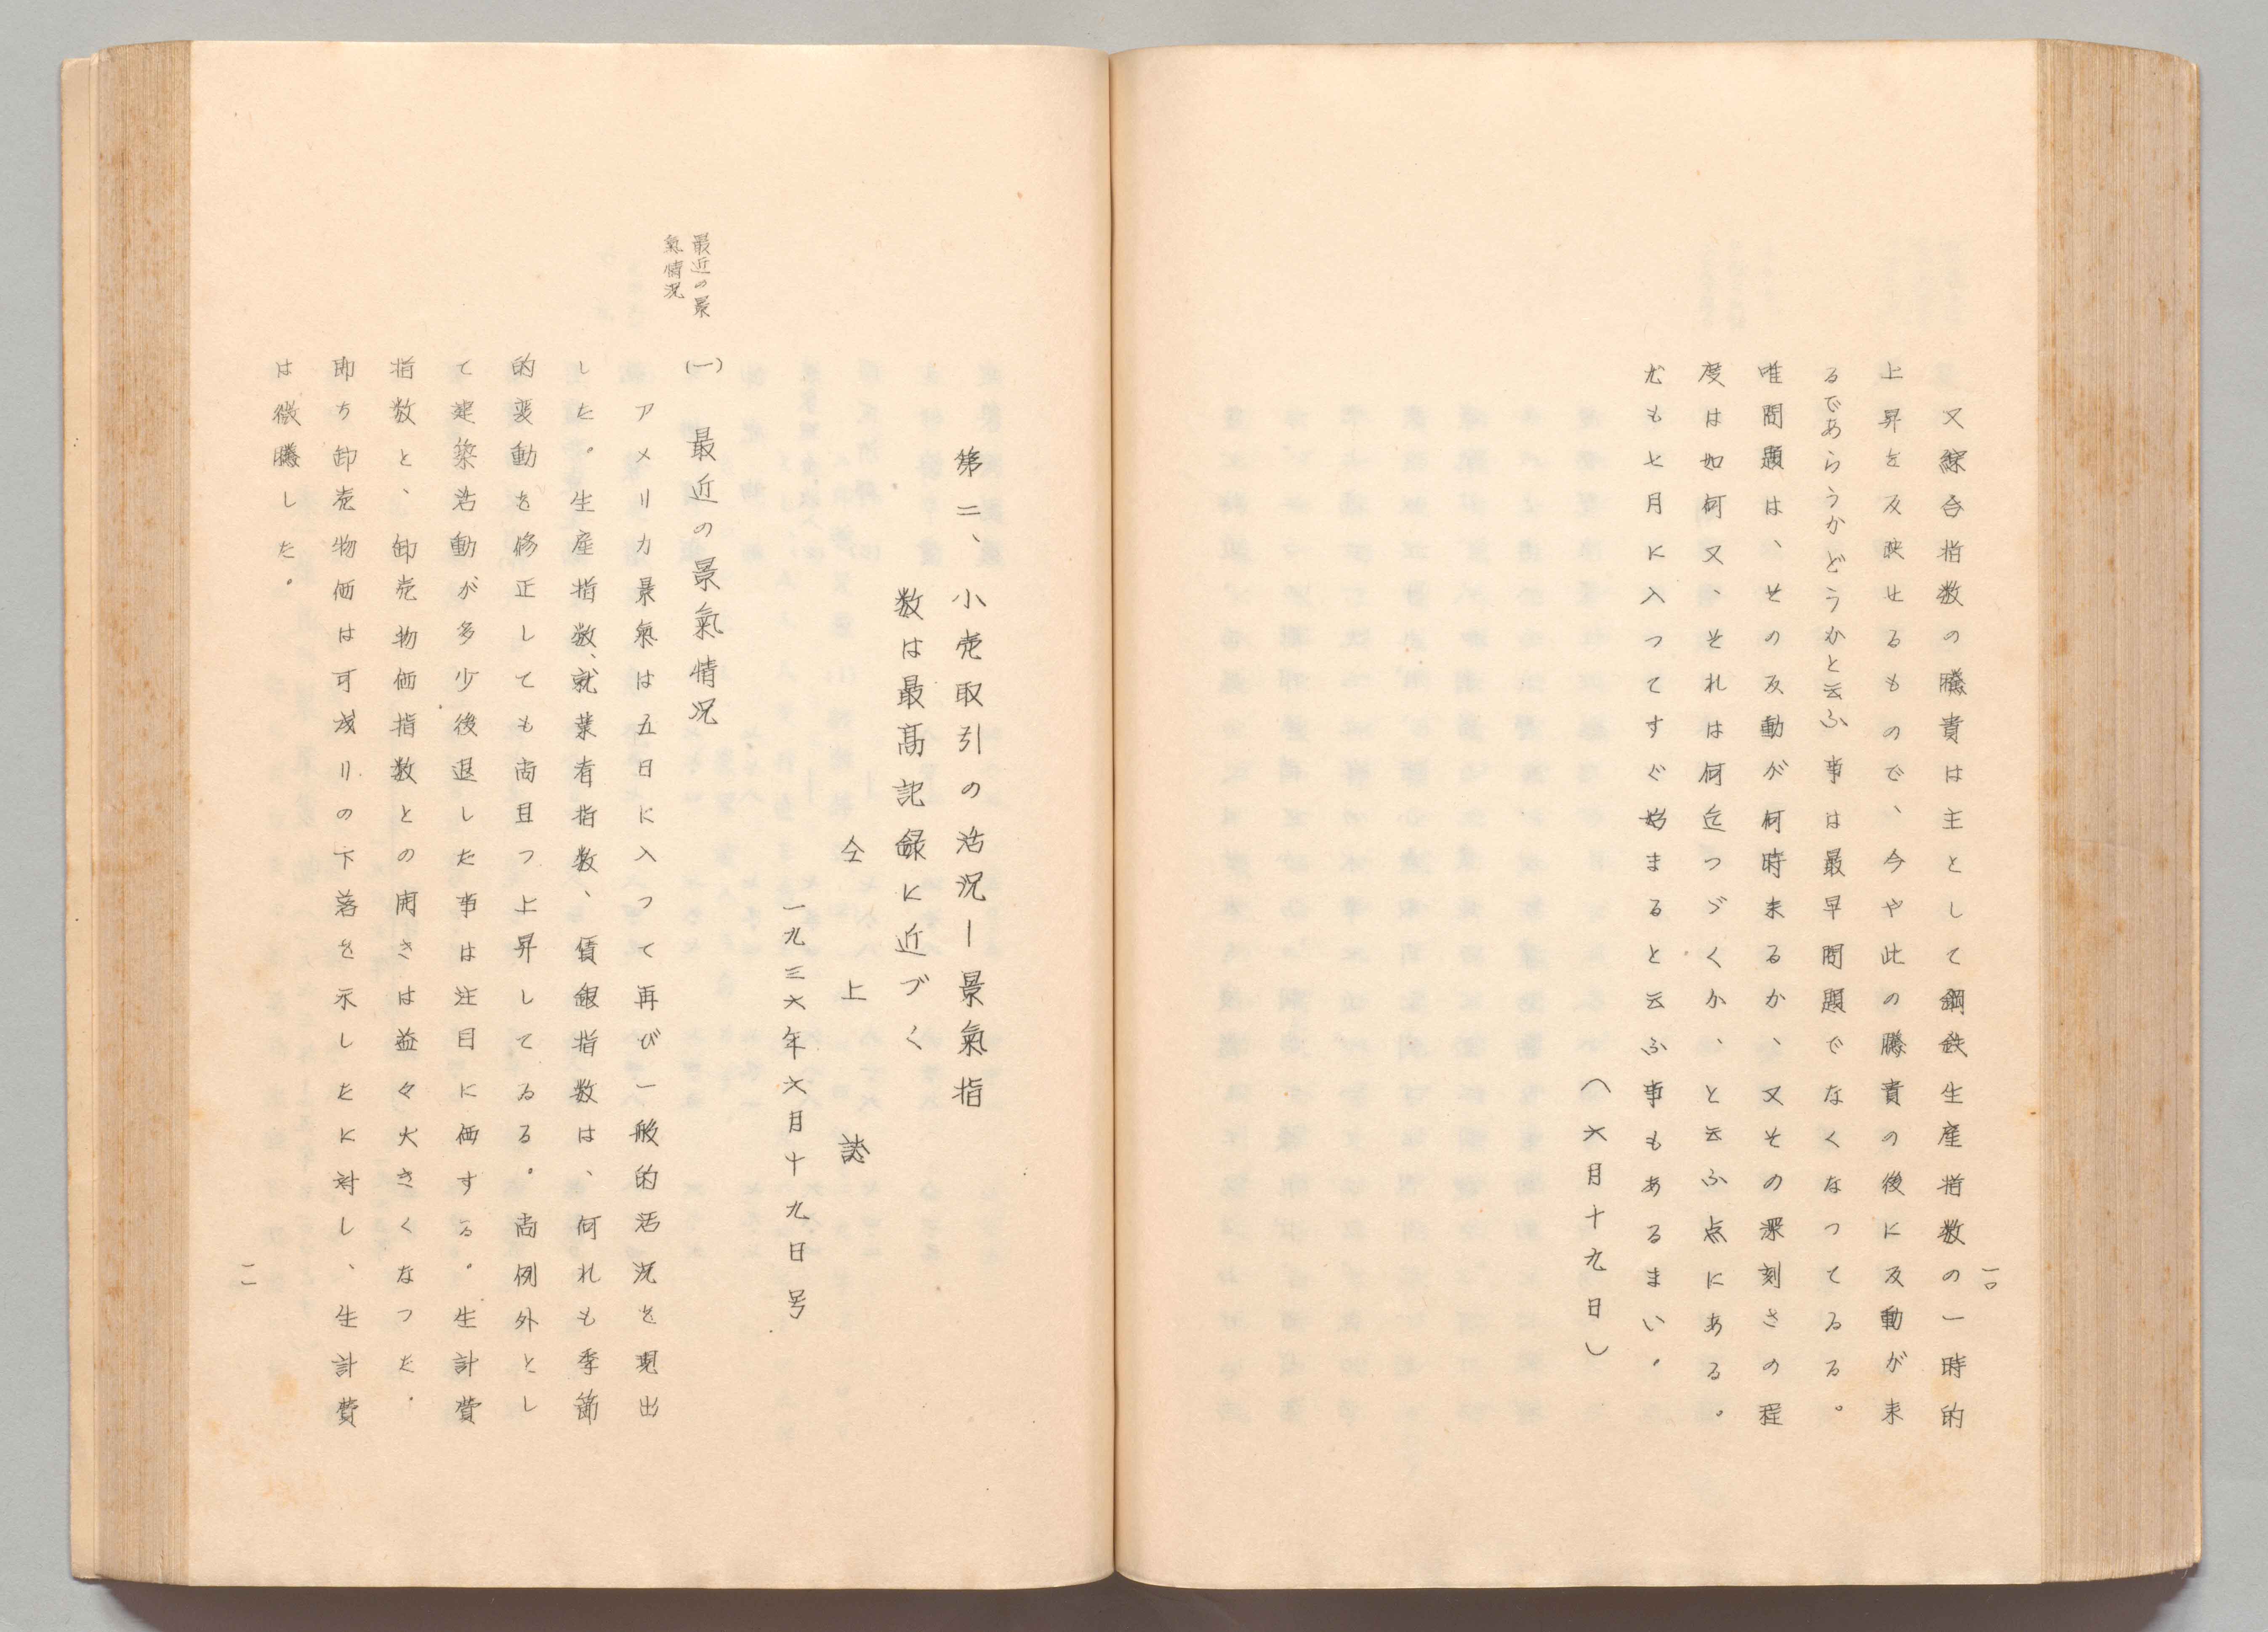 一〇
又綜合指数の騰貴は主として鋼鉄生産指数の一時的
上昇を反映せるもので、今や此の騰貴の後に反動が来
るであらうかどうかと云ふ事は最早問題でなくなつてゐる。
唯問題は、その反動が何時来るか、又その深刻さの程
度は如何又、それは何迄つゞくか、と云ふ点にある。
尤も七月に入つてすぐ始まると云ふ事もあるまい。
(六月十九日)
第二、小売取引の活況ー景氣指
数は最高記録に近づく
仝上誌
一九三六年六月十九日号
最近の景
氣情况
(一) 最近の景氣情况
アメリカ景氣は五日に入つて再び一般的活況を現出
した。生産指数、就業者指数、賃銀指数は、何れも季節
的変動を修正しても尚且つ上昇してゐる。尚例外とし
て建築活動が多少後退した事は注目に価する。生計費
指数と、卸売物価指数との開きは益々大きくなつた。
即ち卸売物価は可成りの下落を示したに対し、生計費
は微騰した。
一一